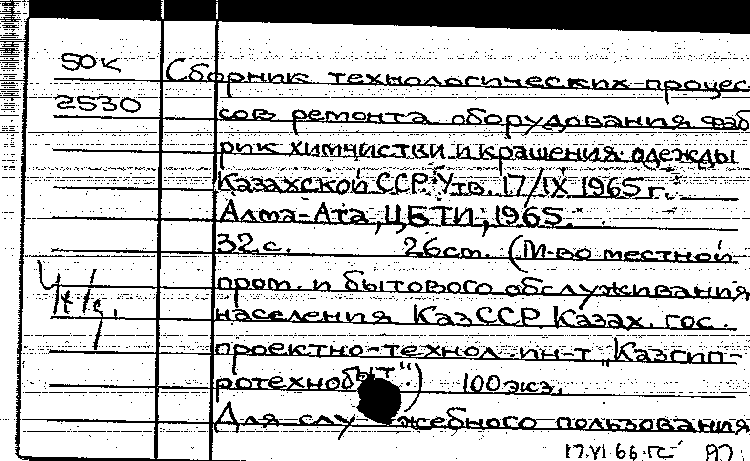 50К Сборник технологических процес-
2530 сов ремонта оборудования фаб
рик химчистки и крашения одежды
Казахской ССР. Утв. 17/IX 1965 г.
Алма-Ата, ЦБТИ, 1965.
32 с. 26 см. (М-во местной
пром. и бытового обслуживания
населения КазССР Казах. гос.
проектно-технол. ин-т „Казгип-
ротехнобыт".) 100 экз.
Для служебного пользования
17.VI.66.